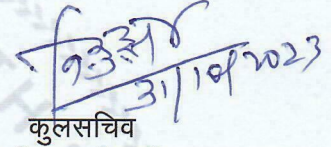 31/10/2023
कुलसचिव